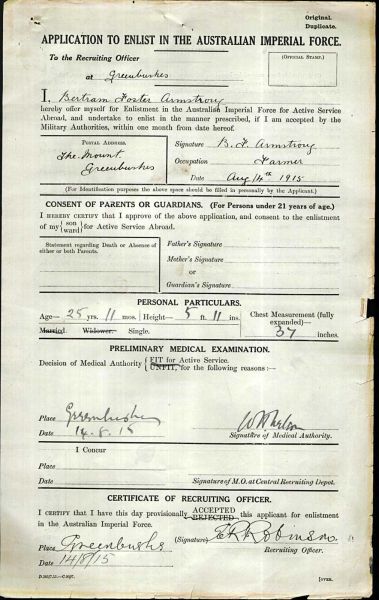 Original.
Duplicate.
APPLICATION TO ENLIST IN THE AUSTRALIAN IMPERIAL FORCE.
To the Recruiting Officer
at Greenbushes
(OFFICIAL STAMP.)
I, Bertram Foster Armstrong
hereby offer myself for Enlistment in the Australian Imperial Force for Active Service
Abroad, and undertake to enlist in the manner prescribed, if I am accepted by the
Military Authorities, within one month from date hereof.
POSTAL ADDRESS.
The Mount
Greenbushes
Signature B. F. Armstrong
Occupation Farmer
Date Aug 14th 1915
(For Identification purposes the above space should be filled in personally by the Applicant.)
CONSENT OF PARENTS OR GUARDIANS. (For Persons under 21 years of age.)
I HEREBY CERTIFY that I approve of the above application, and consent to the enlistment
of my (son ward) for Active Service Abroad.
Statement regarding Death or Absence of
either or both Parents.
Father's Signature
Mother's Signature
or
Guardian's Signature
PERSONAL PARTICULARS.
Age— 25 yrs. 11 mos. Height— 5 ft. 11 ins.
Chest Measurement (fully
expanded)—
37 inches.
Married. Widower. Single.
PRELIMINARY MEDICAL EXAMINATION.
Decision of Medical Authority FIT for Active Service.
UNFIT, for the following reasons:—
Place Greenbushes
Date 14.8.15
Signature of Medical Authority.
I Concur
Place
Date
Signature of M.O. at Central Recruiting Depot.
CERTIFICATE OF RECRUITING OFFICER.
I CERTIFY that I have this day provisionally ACCEPTED REJECTED this applicant for enlistment
in the Australian Imperial Force.
Place Greenbushes
(Signature) Robinson
Recruiting Officer.
Date 14/8/15